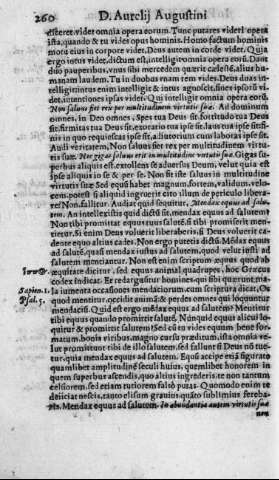 260 D. Aurelij Augustini
diceret. videt omnia opera eorum. Tunc putares videri opera
ista, quando & tu vides opus hominis. Homo factum hominis
motu eius in corpore videt. Deus autem in corde videt. Quia
ergo intus videt, dictum est, intelligit omnia opera eorū. Dant
duo pauperibus, unus sibi mercedem quærit cælestē, alius hu-
manam laudem. Tu in duobus unam rem vides. Deus duas in-
telligit: intus enim intelligit & intus agnoscit, fines ipsorū vi-
det, intentiones ipsas videt. Qui intelligit omnia opera eorū.
Non saluus fiet rex per multitudinem virtutis suæ. Ad dominum
omnes, in Deo omnes. Spes tua Deus sit. fortitudo tua Deus
sit. firmitas tua Deus sit. exoratio tua ipse sit. laus tua ipse sit.
in quo requiescas ipse sit. adiutorium cum laboras ipse sit.
Audi veritatem, Non saluus fiet rex per multitudinem virtu-
tis suæ. Nec gigas saluus erit in multitudine virtutis suæ. Gigas su-
perbus aliquis est. extollens se aduersus Deum, velut quia est
ipse aliquis in se & per se. Non fit iste saluus in multitudine
virtutis suæ Sed equū habet magnum, fortem, validum, velo-
cem. potest si aliquid ingruerit cito illum de periculo libera-
re? Non. fallitur. Audiat quid sequitur, Mendax equus ad salu-
tem. An intellexistis quid dictū sit, mendax equus ad salutem?
Non tibi promittat equus tuus salutē. si tibi promiserit men-
tietur. Si enim Deus voluerit liberaberis. si Deus voluerit ca-
dente equo altius cades. Non ergo putetis dictū, Mēdax equus
ad salutē,
salutem mentiatur. Non est enim scriptum æquus quod ab
æquitate dicitur, sed equus animal quadrupes, hoc Græcus
codex indicat. Et redarguūtur homines, qui sibi quærunt ma-
la iumenta occasiones mendaciorum: cum scriptura dicat, Os
quod mentitur, occidit animā. & perdes omnes qui loquuntur
mendaciū. Quid est ergo mēdax equus ad salutem? Mentitur
tibi equus quando promittit salutē. Nūquid equus alicui lo-
quitur & promittit salutem? Sed cū tu vides equum bene for-
matum, bonis viribus, magno cursu præditum, ista omnia ve-
lut promittunt tibi de illo salutem, sed fallunt si Deus nō tue-
tur, quia mendax equus ad salutem. Equū accipe etiā figurato
quamlibet amplitudinē seculi huius, quemlibet honorem in
quem superbus ascendis, quo altius ingrederis, te non tantum
celsiorem, sed etiam tutiorem falso putas. Quomodo enim te
deiiciat nescis, tanto elisum grauius quāto sublimius fereba-
ris. Mendax equus ad salutem. In abundantia autem virtutis suæ
non
Sapien. 1.
Psal. 5.